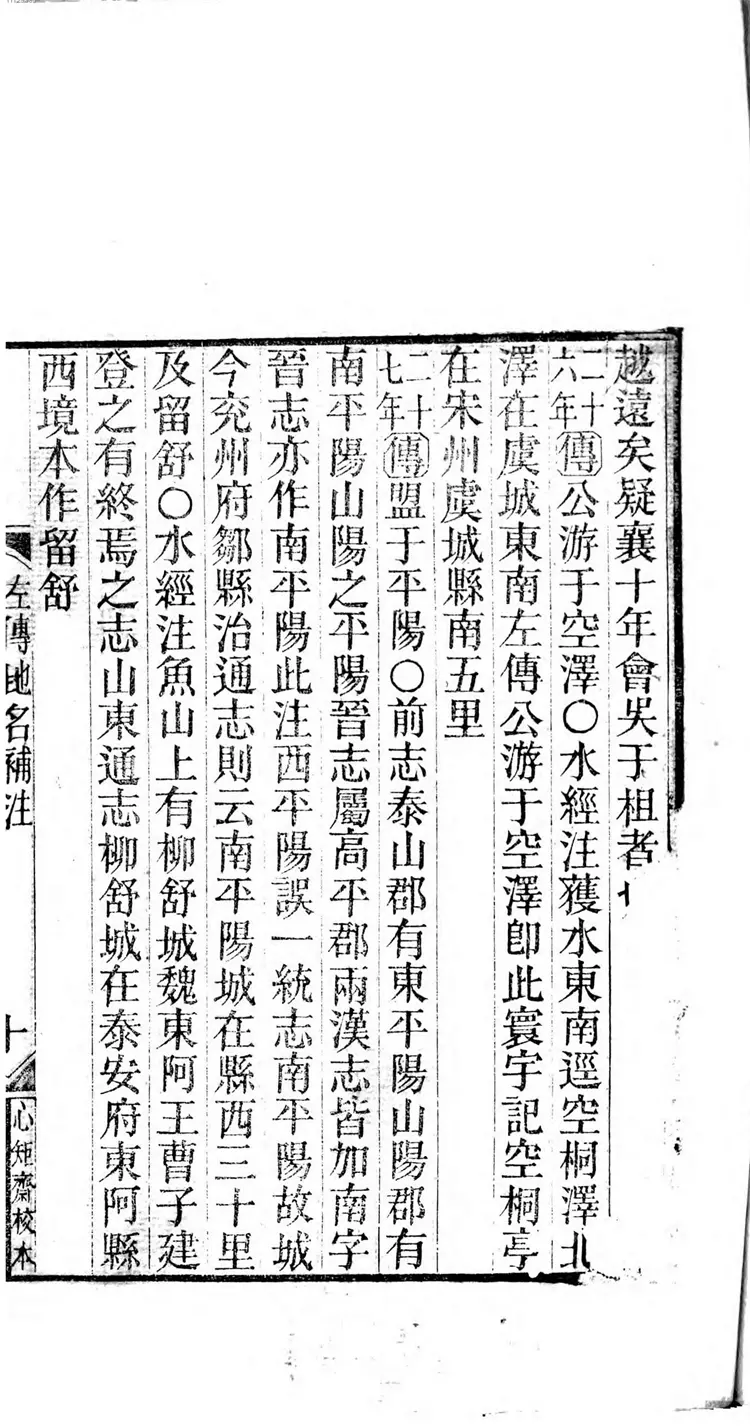 越遠矣疑襄十年會吳于柤者
二十六年傳公游于空澤〇水經注獲水東南逕空桐澤北
澤在虞城東南左傳公游于空澤卽此寰宇記空桐亭
在宋州虞城縣南五里
二十七年傳盟于平陽〇前志泰山郡有東平陽山陽郡有
南平陽山陽之平陽晉志屬高平郡兩漢志皆加南字
晉志亦作南平陽此注西平陽誤一統志南平陽故城
今兖州府鄒縣治通志則云南平陽城在縣西三十里
及留舒〇水經注魚山上有柳舒城魏東阿王曹子建
登之有終焉之志山東通志柳舒城在泰安府東阿縣
西境本作留舒
左傳地名補注
十
心矩齋校本